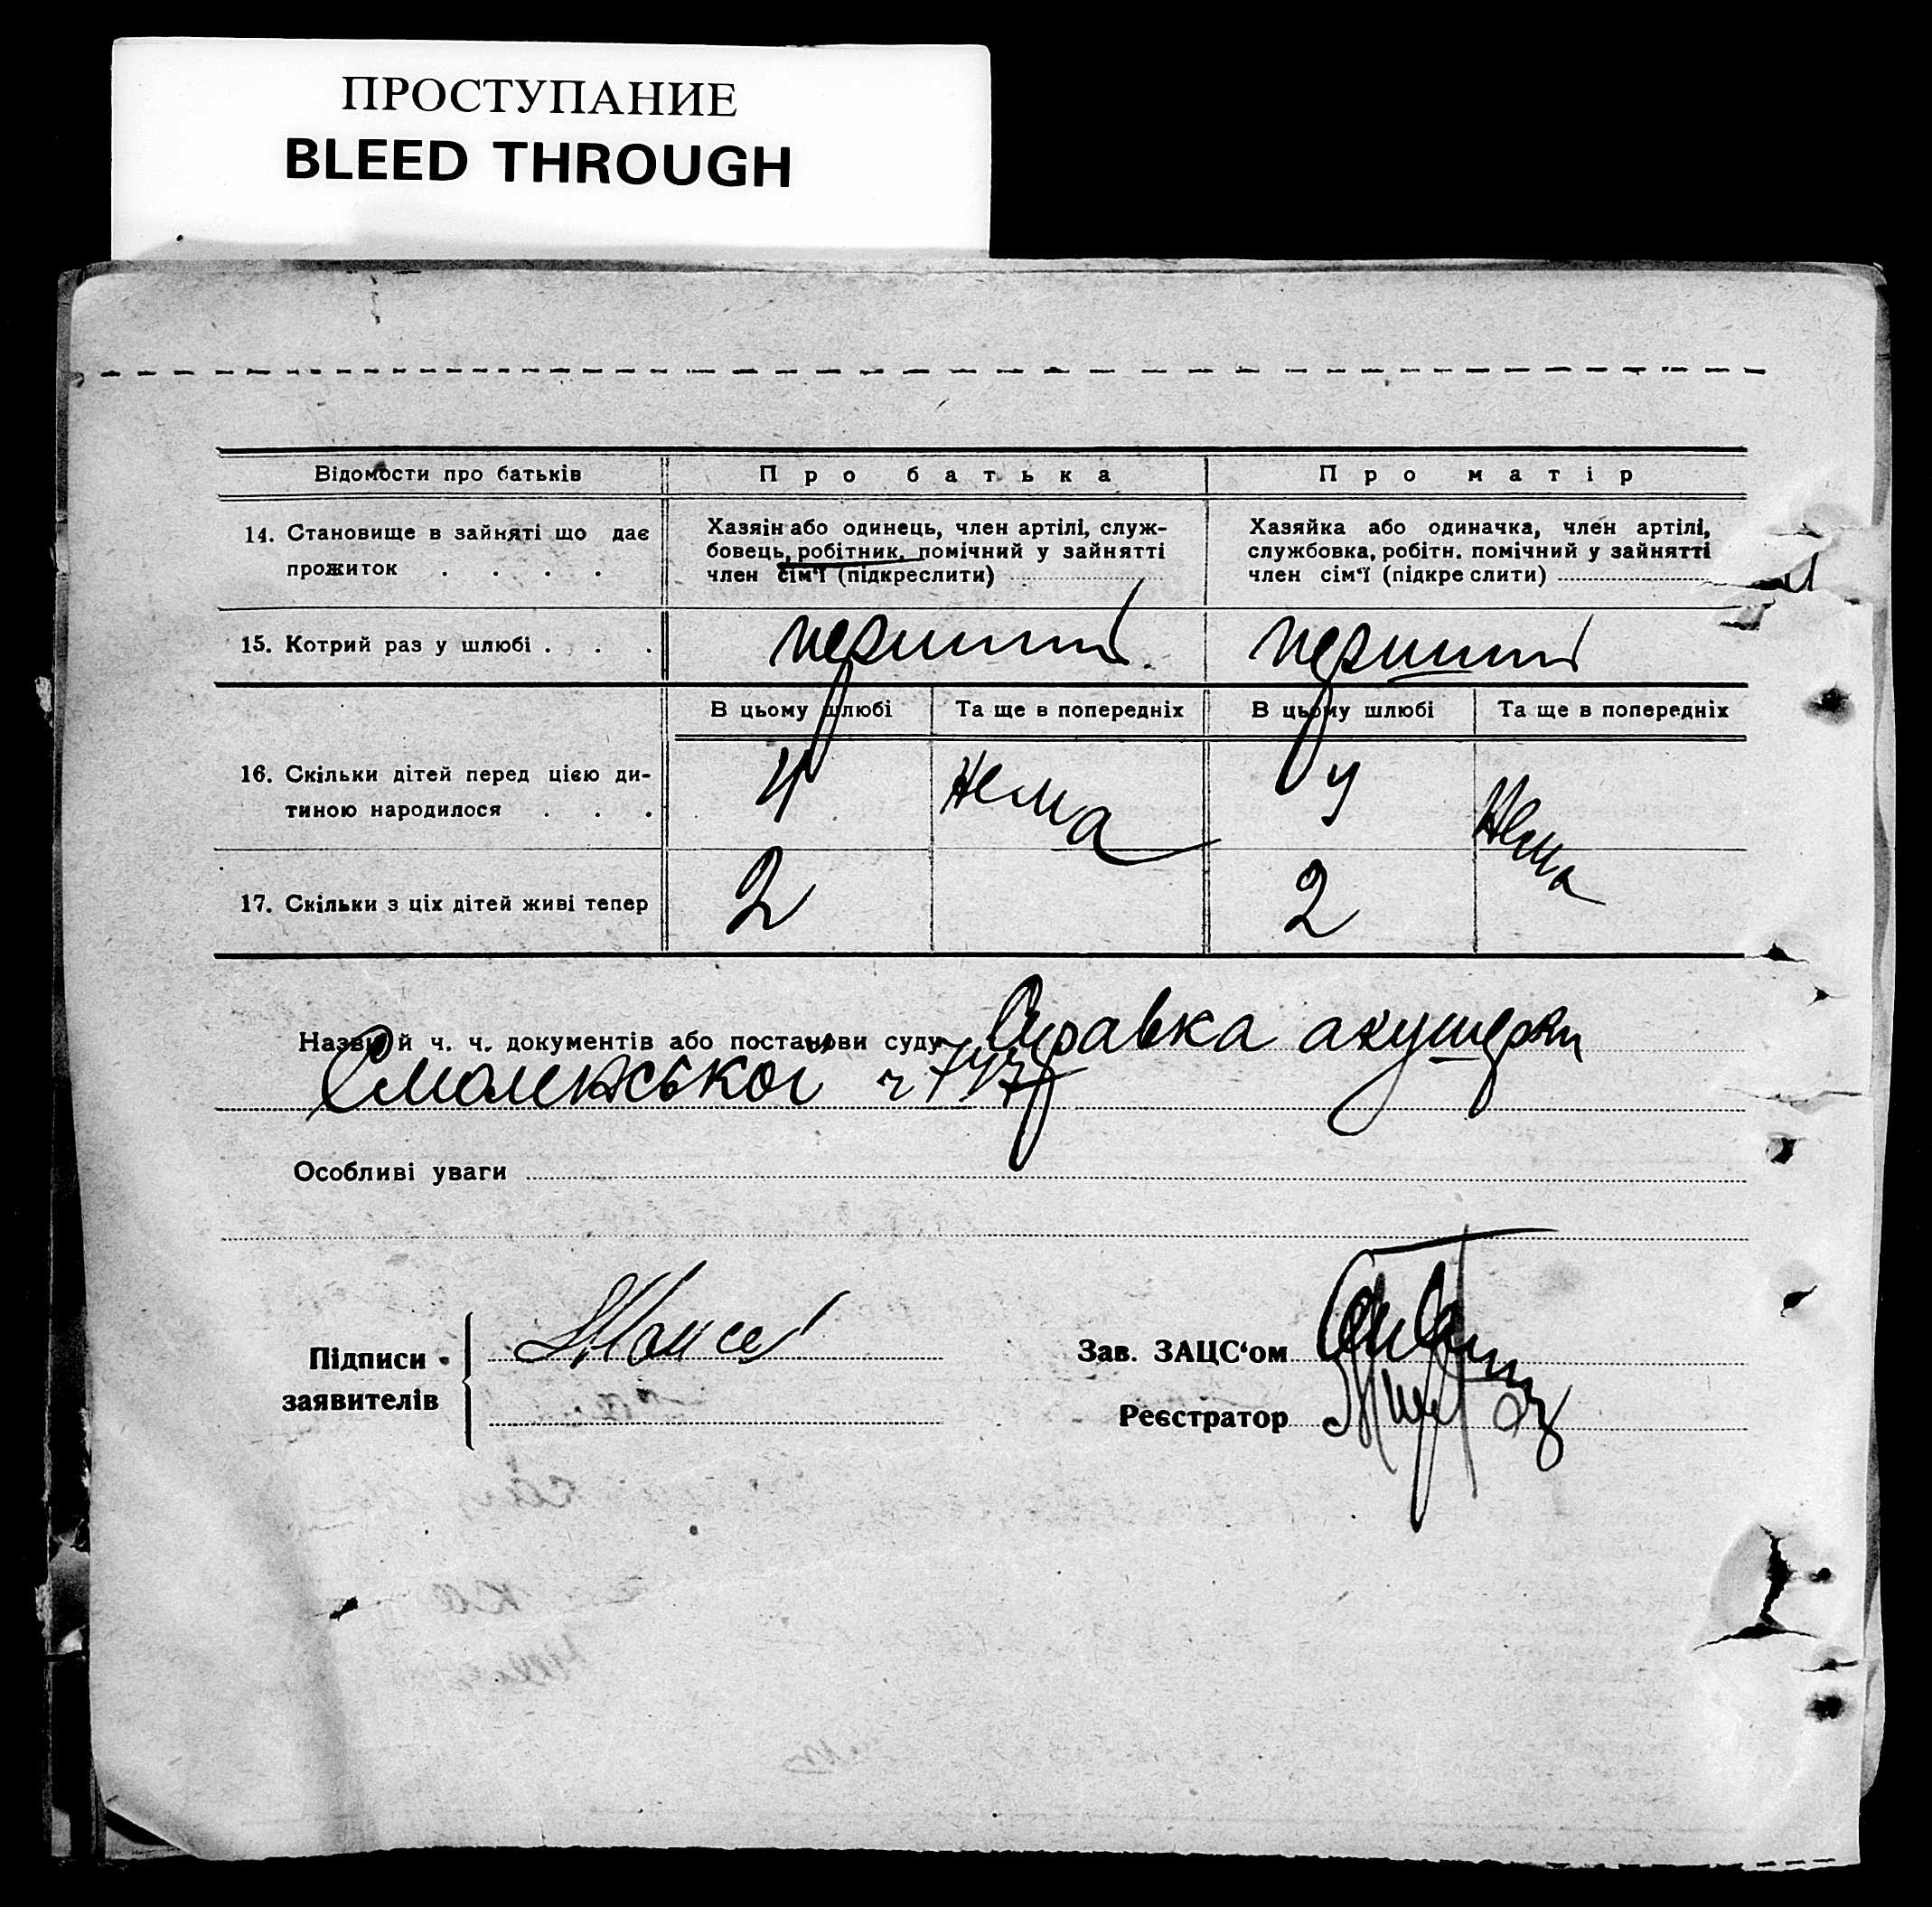 ПРОСТУПАНИЕ
BLEED THROUGH
Відомости про батьків
Про батька
Про матір
14. Становище в зайняті що дає
прожиток . . . .
Хазяін або одинець, член артілі, служ-
бовець, робітник, помічний у зайнятті
член сім'ї (підкреслити)
Хазяйка або одиначка, член артілі,
службовка, робітн. помічний у зайнятті
член сім'ї (підкреслити)
15. Котрий раз у шлюбі . . .
перший
перший
В цьому шлюбі
Та ще в попередніх
В цьому шлюбі
Та ще в попередніх
16. Скільки дітей перед цією ди-
тиною народилося . . .
4
Нема
4
Нема
17. Скільки з ціх дітей живі тепер
2
2
Назви й ч. ч. документів або постанови суду Справка акушерки
Смоленської ч
Особливі уваги
Підписи
заявителів
Зав. ЗАЦС'ом
Реєстратор